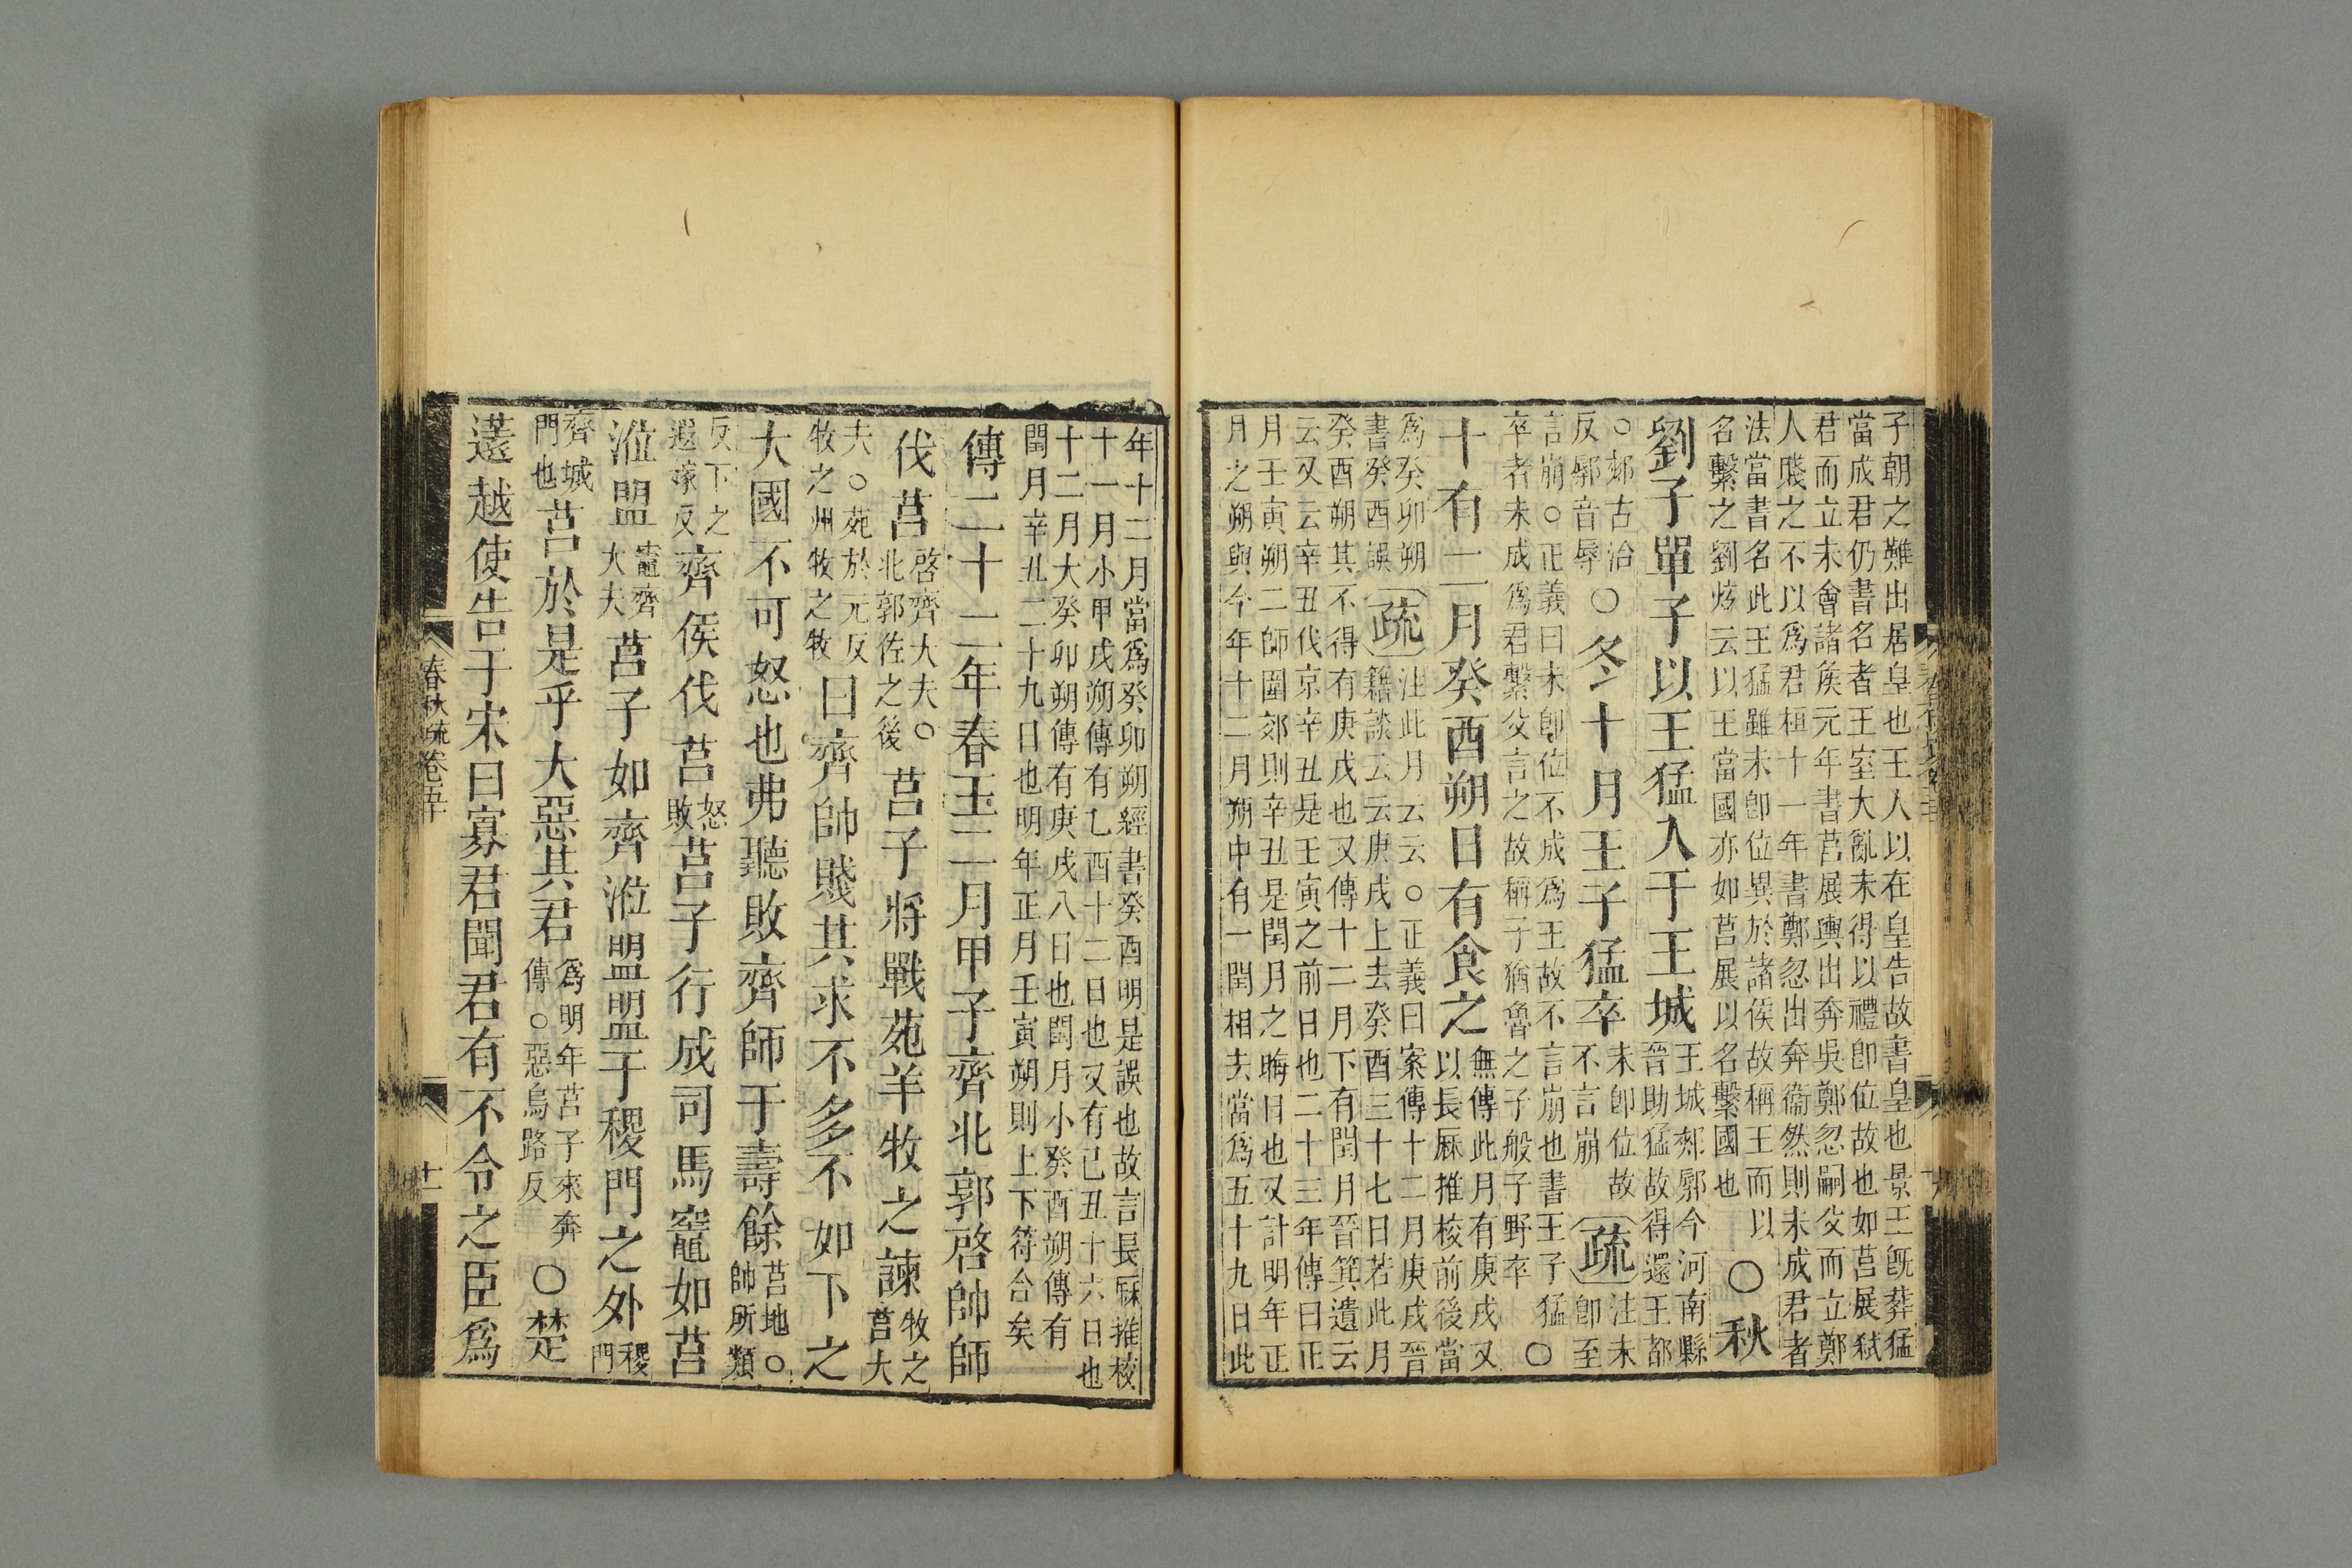 子朝之難出居皇也王人以在皇告故書皇也景王既葬猛
當成君仍書名者王室大亂未得以禮即位故也如莒展弒
君而立未會諸矦元年書莒展輿出奔吳鄭忽嗣父而立鄭
人賤之不以爲君桓十一年書鄭忽出奔衞然則未成君者
法當書名此王猛雖未卽位異於諸侯故稱王而以
名繫之劉炫云以王當國亦如莒展以名繫國也
○秋
劉子單子以王猛入于王城
王城郟鄏今河南縣
晉助猛故得還王都
○郟古洽
反鄏音辱
○冬十月王子猛卒
未卽位故
不言崩
疏
注未
卽至
言崩○正義曰未卽位不成爲王故不言崩也書王子猛
卒者未成爲君繫父言之故稱子猶魯之子般子野卒
○
十有二月癸酉朔日有食之
無傳此月有庚戌又
以長厤推校前後當
爲癸卯朔
書癸酉誤
疏
注此月云云○正義曰案傳十二月庚戌晉
籍談云云庚戌上去癸酉三十七日若此月
癸酉朔其不得有庚戌也又傳十二月下有閏月晉箕遺云
云又云辛丑伐京辛丑是壬寅之前日也二十三年傳曰正
月壬寅朔二師圍郊則辛丑是閏月之晦日也又計明年正
月之朔與今年十二月朔中有一閏相去當爲五十九日此
年十二月當爲癸卯朔經書癸酉明是誤也故言長厤推校
十一月小甲戌朔傳有乙酉十二日也又有己丑十六日也
十二月大癸卯朔傳有庚戌八日也閏月小癸酉朔傳有
閏月辛丑二十九日也明年正月壬寅朔則上下符合矣
傳二十二年春王二月甲子齊北郭啓帥師
伐莒
啓齊大夫○
北郭佐之後
莒子將戰苑羊牧之諫
牧之
莒大
夫○苑於元反
牧之州牧之牧
曰齊帥賤其求不多不如下之
大國不可怒也弗聽敗齊師于壽餘
莒地○
帥所類
反下之
遐嫁反
齊侯伐莒
怒
敗
莒子行成司馬竈如莒
涖盟
竈齊
大夫
莒子如齊涖盟盟于稷門之外
稷
門
齊城
門也
莒於是乎大惡其君
爲明年莒子來奔
傳○惡烏路反
○楚
薳越使告于宋曰寡君聞君有不令之臣爲
春秋疏卷五十
十一